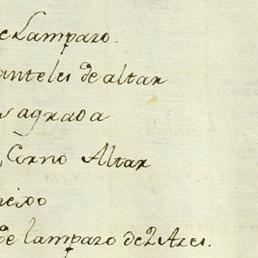 de Lamparo.
anteles de altar
sagrada
Corno Altar
de lamparo de 2 Azes.